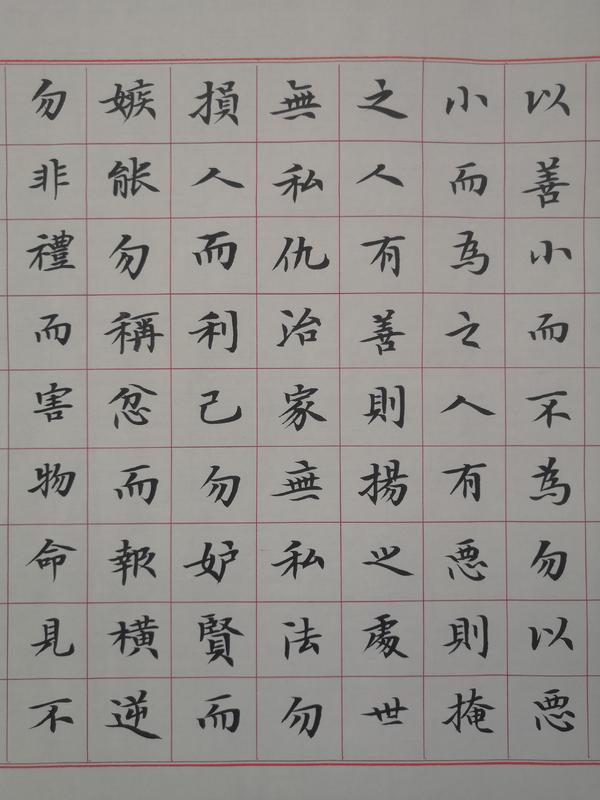 以善小而不為勿以惡
小而為之人有惡則掩
之人有善則揚之處世
無私仇治家無私法勿
損人而利己勿妒賢而
嫉能勿稱忿而報橫逆
勿非禮而害物命見不